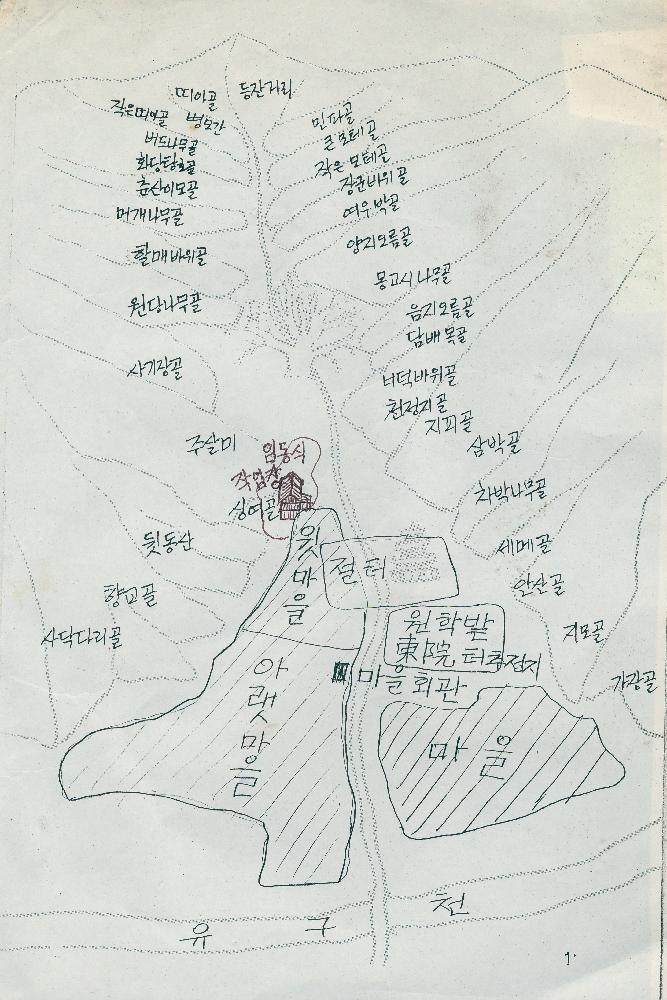 띠아골
등잔거리
작은띠아골
병모간
민파골
버드나무골
큰모테골
화당탕골
작은 모테골
춘산이모골
장군바위골
머개나무골
여우박골
양지오름골
할매바위골
몽고시나무골
원당나무골
음지오름골
담배목골
사기장골
너덕바위골
천정지골
지피골
주살미
임동식
작업장
삼박골
차박나무골
싱여골
뒷동산
윗마을
절터
세메골
안산골
향교골
사닥다리골
원학밭
東院터추정지
지모골
가장골
마을회관
아랫마을
마을
유구천
1.